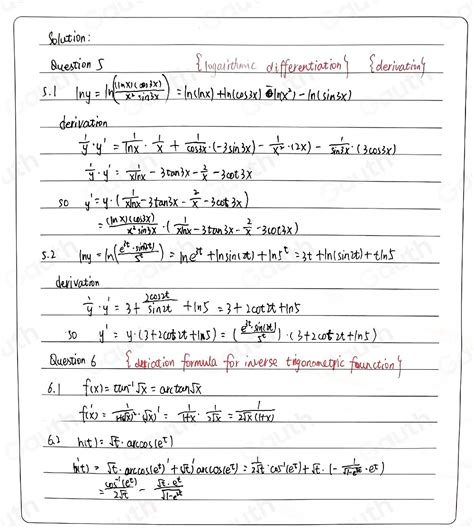 Solution:
Question 5 {logarithmic differentiation} {derivation}
5.1 lny = ln((lnx)(cos3x)/x² sin3x) = ln(lnx) + ln(cos3x) - ln(x²) - ln(sin3x)
derivation
1/y · y' = 1/lnx · 1/x + 1/cos3x · (-3sin3x) - 1/x² · (2x) - 1/sin3x · (3cos3x)
1/y · y' = 1/xlnx - 3tan3x - 2/x - 3cot3x
so y' = y · (1/xlnx - 3tan3x - 2/x - 3cot3x)
= (lnx)(cos3x)/x² sin3x · (1/xlnx - 3tan3x - 2/x - 3cot3x)
5.2 lny = ln(e³ᵗ · sin(2t)/5ᵗ) = lne³ᵗ + lnsin(2t) + ln5ᵗ = 3t + ln(sin2t) + tln5
derivation
1/y · y' = 3 + 2cos2t/sin2t + ln5 = 3 + 2cot2t + ln5
so y' = y · (3 + 2cot2t + ln5) = (e³ᵗ · sin(2t)/5ᵗ) · (3 + 2cot2t + ln5)
Question 6 {derication formula for inverse trigonometric function}
6.1 f(x) = tan⁻¹√x = arctan√x
f'(x) = 1/1+(√x)² · (√x)' = 1/1+x · 1/2√x = 1/2√x(1+x)
6.2 h(t) = √t · arccos(eᵗ)
h'(t) = √t · arccos(eᵗ)' + (√t)' arccos(eᵗ) = 1/2√t · cos⁻¹(eᵗ) + √t · (- 1/√1-e²ᵗ · eᵗ)
= cos⁻¹(eᵗ)/2√t - √t · eᵗ/√1-e²ᵗ